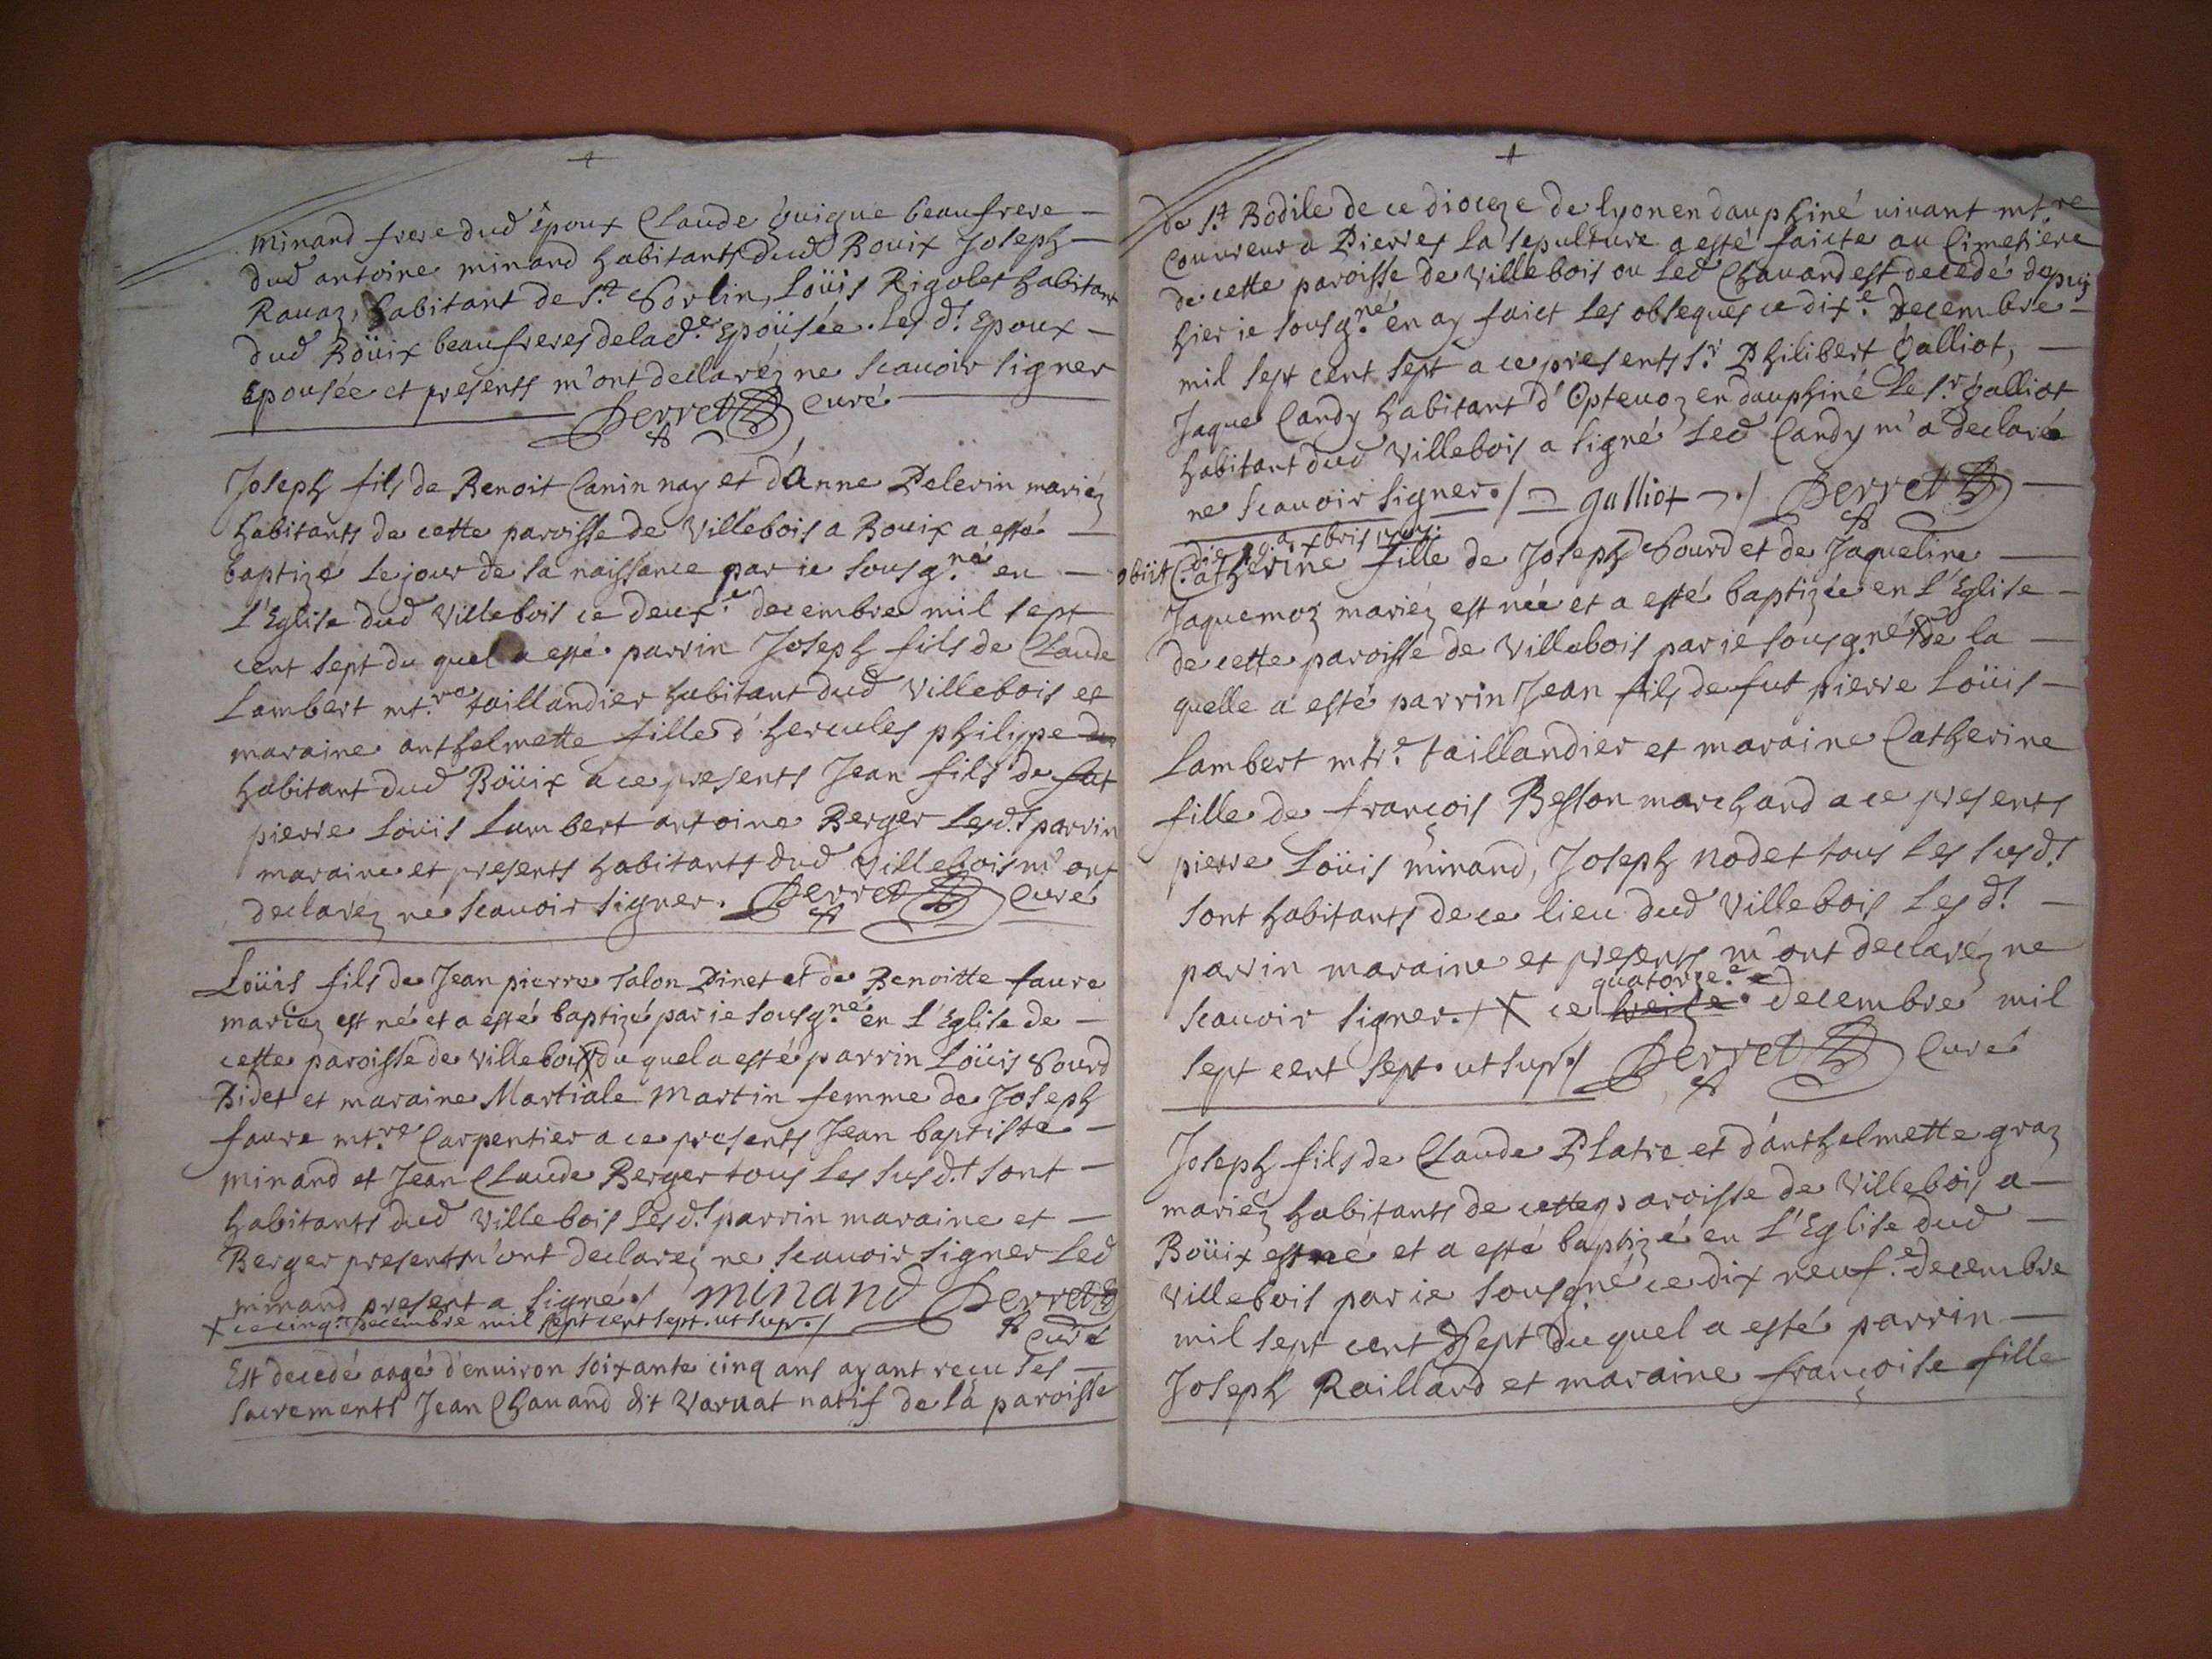 minand frere dud Epoux Claude Guigue beaufrere
dud antoine minand habitants dud Bouix Joseph
Ravaz, habitant de St. Sorlin, Loüis Rigolet habitant
dud Boüix beaufreres delad.e Epoüsée. Lesd.s Epoux
Epousée et presents m'ont declaréz ne scavoir signer
Perret Curé
Joseph fils de Benoit Canin nay et d'anne Pelerin mariéz
habitants de cette paroisse de Villebois a Bouix a esté
baptizé le jour de sa naissance par ie sousg.né en
L'Eglise dud Villebois ce deux.e decembre mil sept
cent sept du quel a esté parrin Joseph fils de Claude
Lambert mt.re taillandier habitant dud Villebois et
maraine anthelmette fille d'hercules philippe
habitant dud Boüix a ce presents Jean fils de fut
pierre Loüis Lambert antoine Berger Lesd.s parrin
maraine et presents habitants dud Villebois m'ont
declaréz ne scavoir signer. Perret Curé
Loüis fils de Jean pierre Salon Dinet et de Benoitte faure
mariéz est né et a esté baptizé par ie sousg.né en L'Eglise de
cette paroisse de Villebois X du quel a esté parrin Loüis Sourd
Didet et maraine Martiale martin femme de Joseph
faure mt.re Carpentier a ce presents Jean baptiste
minand et Jean Claude Berger tous les susd.s sont
habitants dud Villebois Lesd.s parrin maraine et
Berger present m'ont declaréz ne scavoir signer Led
minand present a signé./ minand Perret
X ce cinq.e decembre mil sept cent sept. ut supr./ Curé
Est decedé aagé d'environ soixante cinq ans ayant receu ses
sacrements Jean Chavand dit Varvat natif de la paroisse
de St. Bodile de ce dioceze de lyon en dauphiné vivant mt.re
Couvreur a Pierres La sepulture a esté faicte au Cimetiere
de cette paroisse de Villebois ou Led Chavand est decedé depuis
hier ie sousg.né en ay faict Les obseques ce dix.e Decembre
mil sept cent sept a ce presents s.r Philibert Galliot,
Jaque Candy habitant d'Optevoz en dauphiné Le s.r Galliot
habitant dud Villebois a signé Led Candy m'a declaré
ne scavoir signer./ galliot ./ Perret
obiit die xbris
Catherine fille de Joseph Sourd et de Jaqueline
Jaquemoz mariéz est née et a esté baptizée en L'Eglise
de cette paroisse de Villebois par ie sousg.né X de la
quelle a esté parrin Jean fils de fut pierre Loüis
Lambert mtr.e taillandier et maraine Catherine
fille de françois Besson marchand a ce presents
pierre Loüis minand, Joseph nodet tous Les susd.s
sont habitants de ce lieu dud Villebois Lesd.s
parrin maraine et presents m'ont declaréz ne
quatorze.e
scavoir signer./ X ce treize.e decembre mil
sept cent sept. ut sup./ Perret Curé
Joseph fils de Claude Platre et d'anthelmette graz
mariéz habitants de cette paroisse de Villebois a
Boüix est né et a esté baptizé en L'Eglise dud
Villebois par ie sousg.né ce dix neuf.e decembre
mil sept cent Sept Du quel a esté parrin
Joseph Raillard et maraine françoise fille